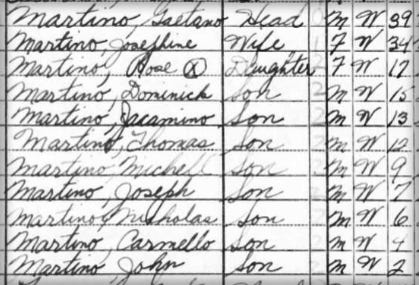 Martino, Gaetano Head M W 39
Martino, Josephine Wife F W 34
Martino, Rose Ⓧ Daughter F W 17
Martino, Dominick Son M W 15
Martino, Jacamino Son M W 13
Martino, Thomas Son M W 12
Martino, Michell Son M W 9
Martino, Joseph Son M W 7
Martino, Nicholas Son M W 6
Martino, Carmello Son M W 4
Martino John Son M W 2